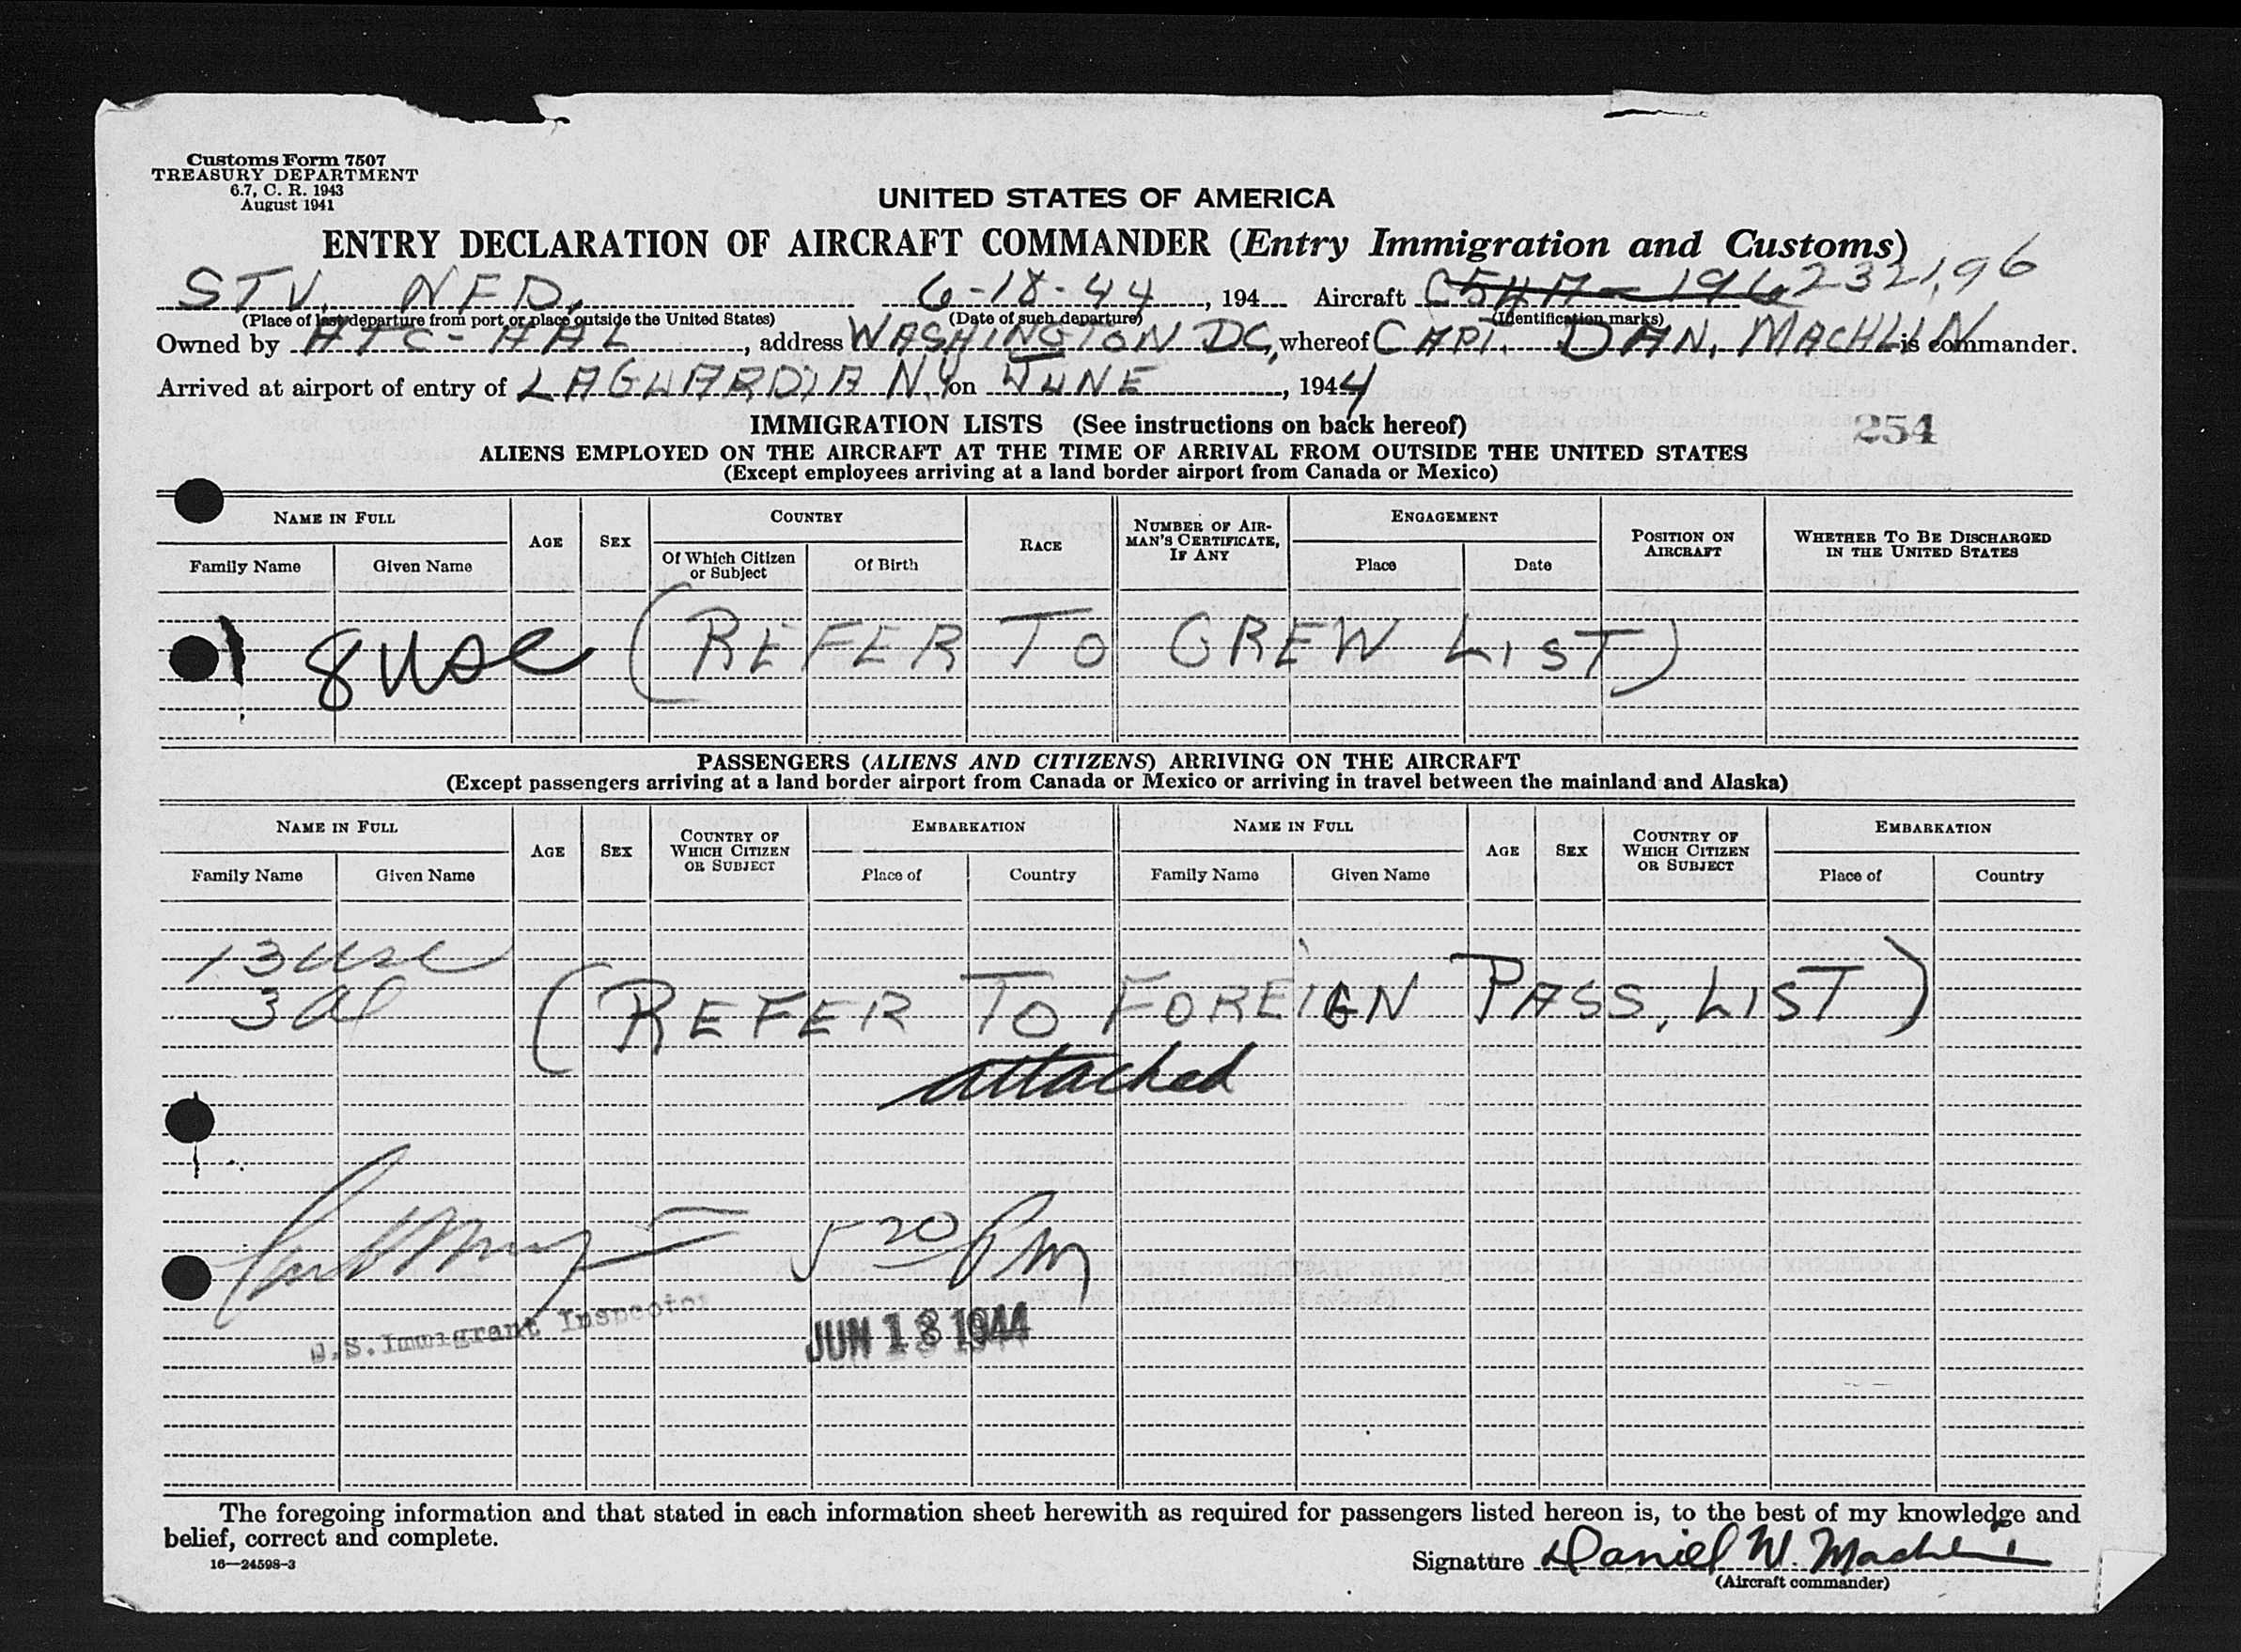 Customs Form 7507
TREASURY DEPARTMENT
6.7, C. R. 1943
August 1941
UNITED STATES OF AMERICA
ENTRY DECLARATION OF AIRCRAFT COMMANDER (Entry Immigration and Customs)
STV. NFD. 6-18-44, 194 Aircraft C54A - 196 232196
(Place of last departure from port or place outside the United States) (Date of such departure) (Identification marks)
Owned by ATC-AAL, address WASHINGTON DC, whereof CAPT. DAN. MACHLIN is commander.
Arrived at airport of entry of LAGUARDIA N.Y. on JUNE, 1944
IMMIGRATION LISTS (See instructions on back hereof)
254
ALIENS EMPLOYED ON THE AIRCRAFT AT THE TIME OF ARRIVAL FROM OUTSIDE THE UNITED STATES
(Except employees arriving at a land border airport from Canada or Mexico)
NAME IN FULL AGE SEX COUNTRY RACE NUMBER OF AIRMAN'S CERTIFICATE, IF ANY ENGAGEMENT POSITION ON AIRCRAFT WHETHER TO BE DISCHARGED IN THE UNITED STATES
Family Name Given Name Of Which Citizen or Subject Of Birth Place Date
8 usc (REFER TO CREW LIST)
PASSENGERS (ALIENS AND CITIZENS) ARRIVING ON THE AIRCRAFT
(Except passengers arriving at a land border airport from Canada or Mexico or arriving in travel between the mainland and Alaska)
NAME IN FULL AGE SEX COUNTRY OF WHICH CITIZEN OR SUBJECT EMBARKATION NAME IN FULL AGE SEX COUNTRY OF WHICH CITIZEN OR SUBJECT EMBARKATION
Family Name Given Name Place of Country Family Name Given Name Place of Country
13 usc
3 al (REFER TO FOREIGN PASS. LIST)
attached
5 20 Pm
U.S. Immigrant Inspector
JUN 18 1944
The foregoing information and that stated in each information sheet herewith as required for passengers listed hereon is, to the best of my knowledge and
belief, correct and complete.
16—24598-3
Signature Daniel W. Machlin
(Aircraft commander)